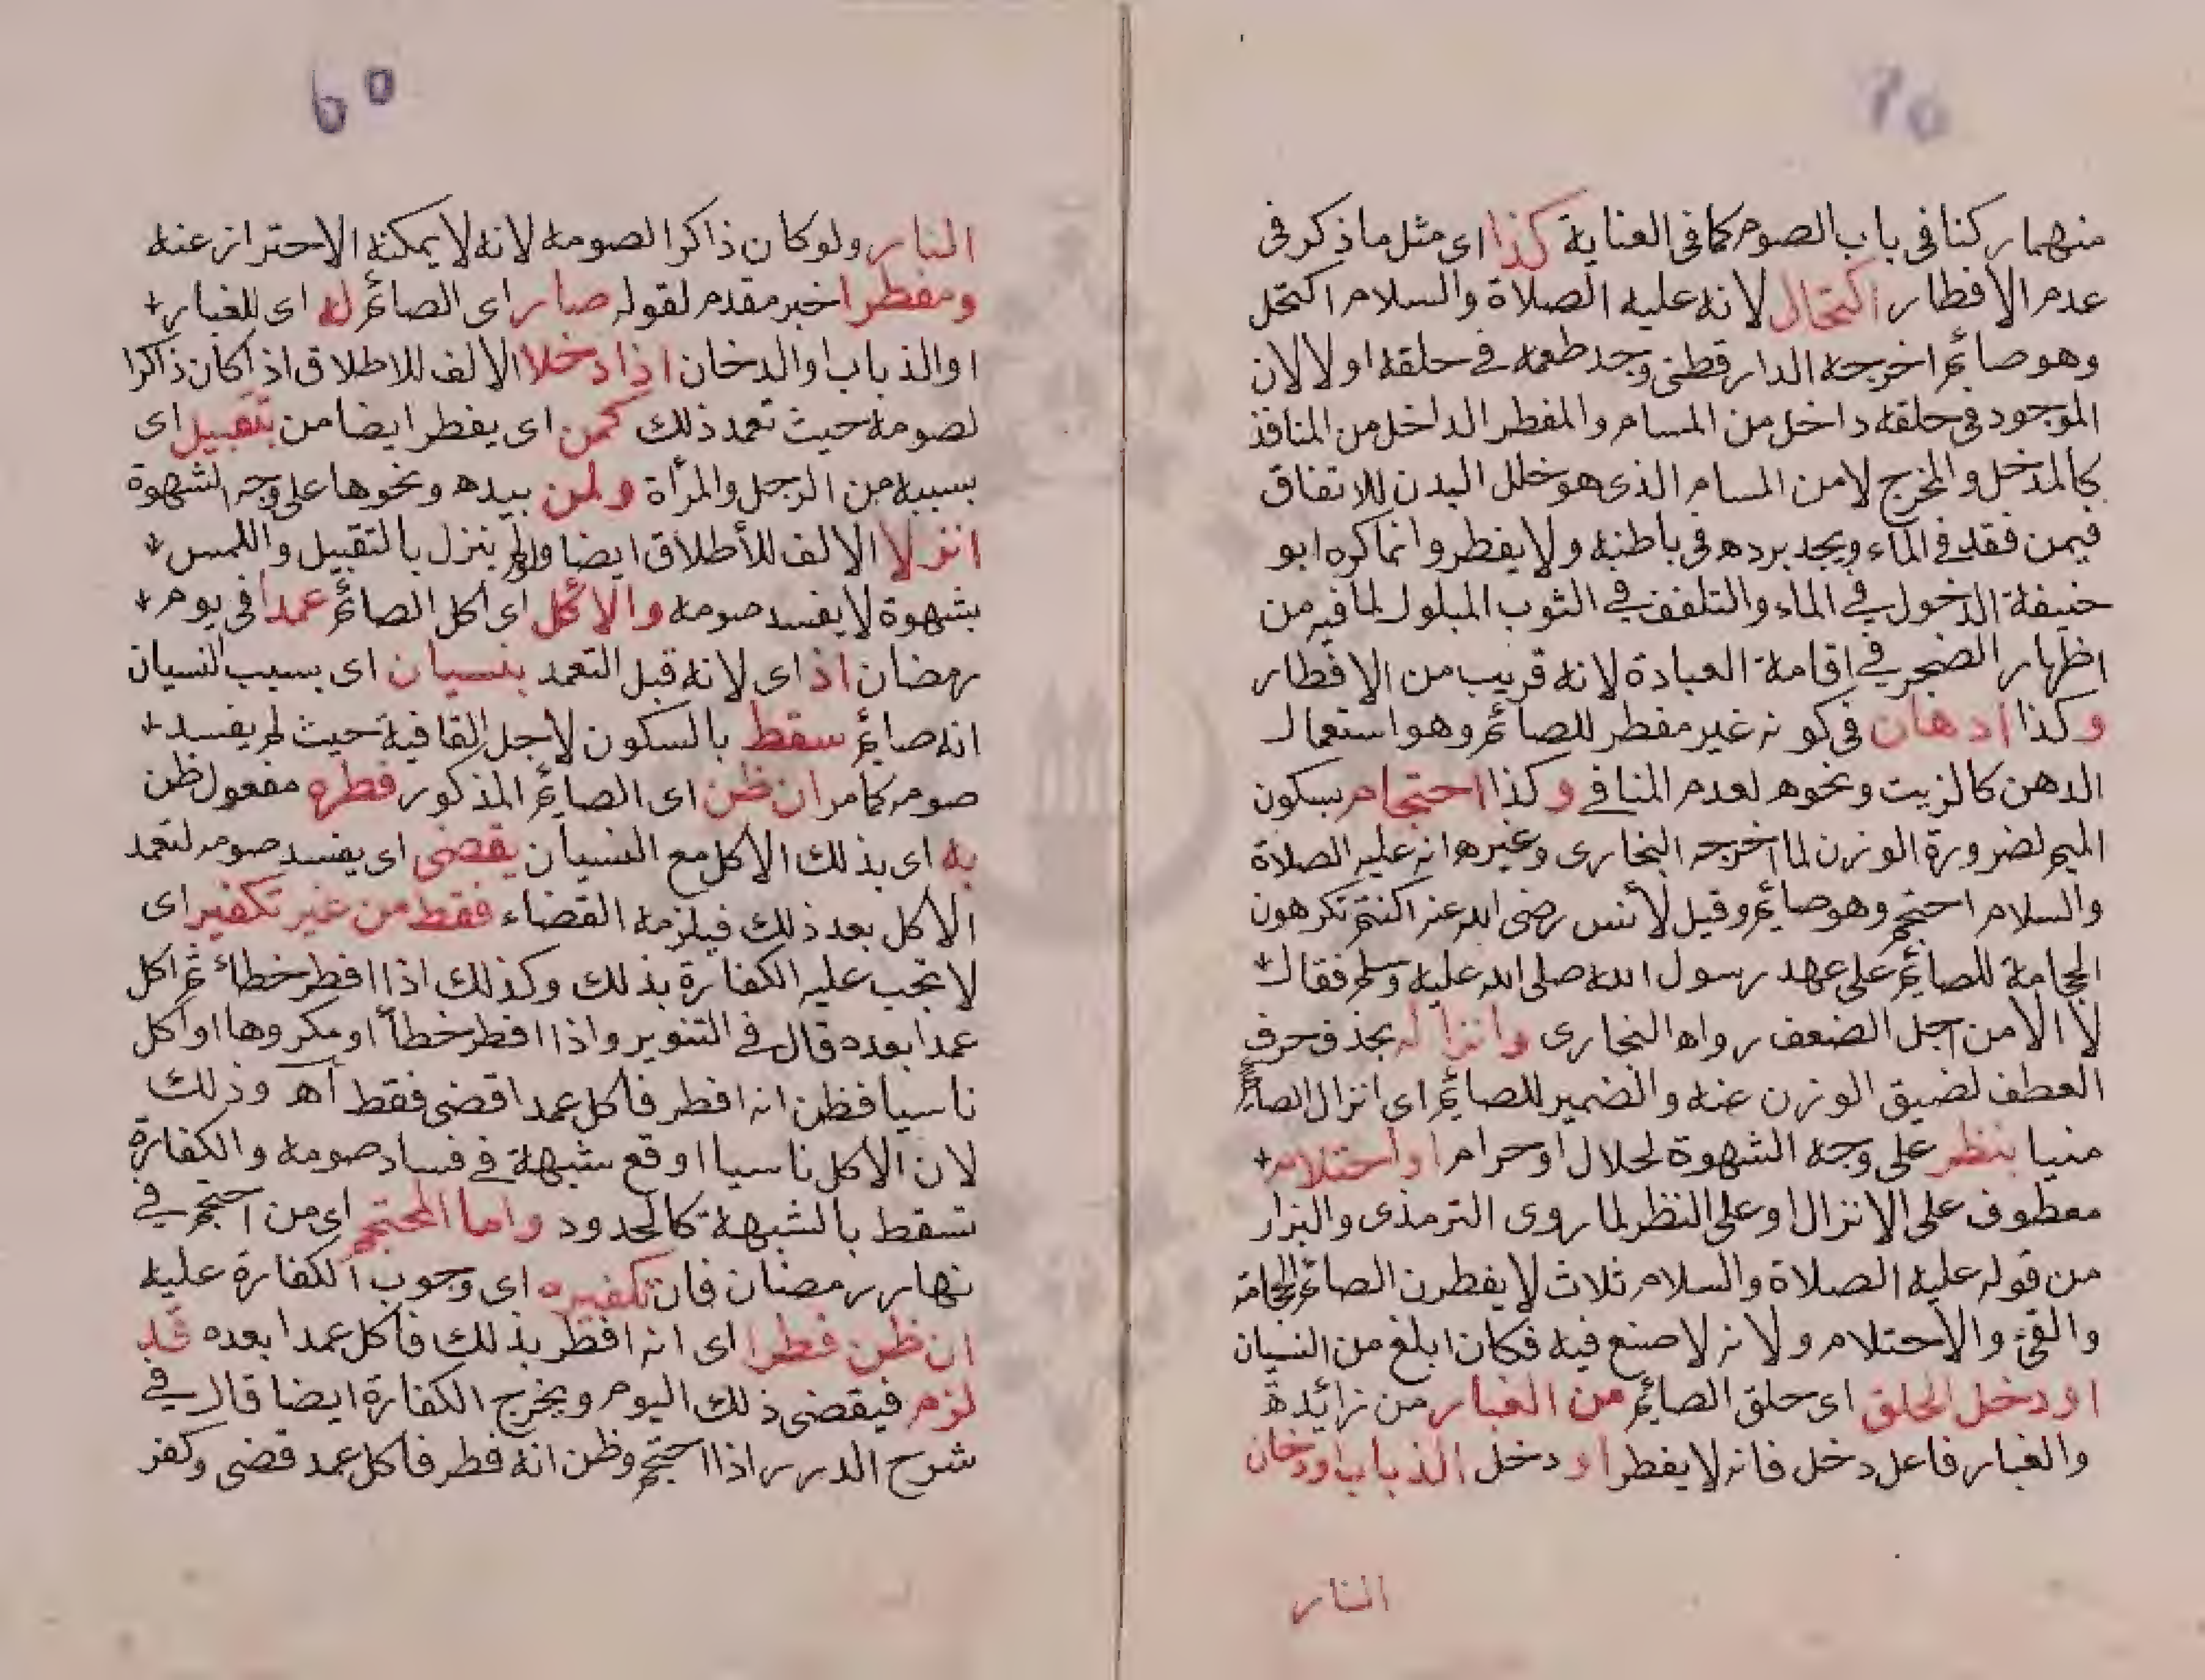 منهما ركنا فى باب الصوم كما فى العناية كذا اى مثل ما ذكر فى
عدم الافطار اكتحال لانه عليه الصلاة والسلام اكتحل
وهو صائم اخرجه الدارقطنى وجد طعمه فى حلقه او لا لان
الموجود فى حلقه داخل من المسام والمفطر الداخل من المنافذ
كالمدخل والمخرج لا من المسام الذى هو خلل البدن للاتفاق
فيمن فقد فى الماء ويجد برده فى باطنه ولا يفطر وانما كره ابو
حنيفة الدخول فى الماء والتلفف فى الثوب المبلول لما فيه من
اظهار الضجر فى اقامة العبادة لانه قريب من الافطار
وكذا ادهان فى كونه غير مفطر للصائم وهو استعمال
الدهن كالزيت ونحوه لعدم المنافى وكذا احتجام بسكون
الميم لضرورة الوزن لما اخرجه البخارى وغيره انه عليه الصلاة
والسلام احتجم وهو صائم وقيل لأنس رضى الله عنه اكنتم تكرهون
الحجامة للصائم على عهد رسول الله صلى الله عليه وسلم فقال
لا الا من اجل الضعف رواه البخارى وانزاله بحذف حرف
العطف لضيق الوزن عنه والضمير للصائم اى انزال الصائم
منيا بنظر على وجه الشهوة لحلال او حرام او احتلام
معطوف على الانزال او على النظر لما روى الترمذى والبزار
من قوله عليه الصلاة والسلام ثلاث لا يفطرن الصائم الحجامة
والقئ والاحتلام ولانه لا صنع فيه فكان ابلغ من النسيان
او دخل الحلق اى حلق الصائم من الغبار من زائدة
والغبار فاعل دخل فانه لا يفطر او دخل الذباب او دخان
النار
60
النار ولو كان ذاكرا لصومه لانه لا يمكنه الاحتراز عنه
ومفطرا خبر مقدم لقوله صار اى الصائم له اى للغبار
او الذباب والدخان اذا دخلا الالف للاطلاق اذا كان ذاكرا
لصومه حيث تعمد ذلك كمن اى يفطر ايضا من بتقبيل اى
بسببه من الرجل والمرأة ولمن بيده ونحوها على وجه الشهوة
انزلا الالف للأطلاق ايضا ولو لم ينزل بالتقبيل واللمس
بشهوة لا يفسد صومه والاكل اى اكل الصائم عمدا فى يوم
رمضان اذ اى لانه قبل التعمد بنسيان اى بسبب النسيان
انه صائم سقط بالسكون لاجل القافية حيث لم يفسد
صومه كما مر ان ظن اى الصائم المذكور فطره مفعول ظن
به اى بذلك الاكل مع النسيان يقضى اى يفسد صومه لتعمد
الاكل بعد ذلك فيلزمه القضاء فقط من غير تكفير اى
لا تجب عليه الكفارة بذلك وكذلك اذا افطر خطاء ثم اكل
عمدا بعده قال فى التنوير واذا افطر خطأ او مكروها او اكل
ناسيا فظن انه افطر فاكل عمدا قضى فقط آه وذلك
لان الاكل ناسيا اوقع شبهة فى فساد صومه والكفارة
تسقط بالشبهة كالحدود واما المحتجم اى من احتجم فى
نهار رمضان فان تكفيره اى وجوب الكفارة عليه
ان ظن فطرا اى انه افطر بذلك فاكل عمدا بعده قد
لزم فيقضى ذلك اليوم ويخرج الكفارة ايضا قال فى
شرح الدرر اذا احتجم وظن انه فطر فاكل عمد قضى وكفر